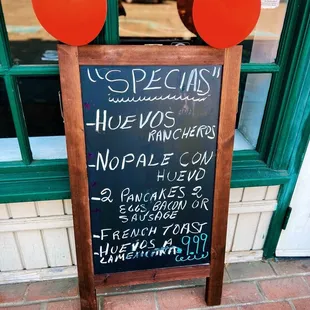 "SPECIALS"
-HUEVOS
RANCHEROS
-NOPALE CON
HUEVO
-2 PANCAKES 2
EGGS, BACON OR
SAUSAGE
-FRENCH TOAST
-HUEVOS A
LAMEXICANA 9.99